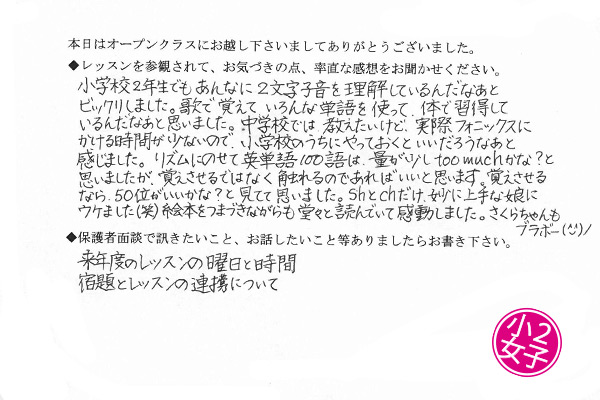 本日はオープンクラスにお越し下さいましてありがとうございました。
◆レッスンを参観されて、お気づきの点、率直な感想をお聞かせください。
小学校2年生でもあんなに2文字子音を理解しているんだなあと
ビックリしました。歌で覚えていろんな単語を使って、体で習得して
いるんだなあと思いました。中学校では、教えたいけど、実際フォニックスに
かける時間が少ないので、小学校のうちにやっておくといいだろうなあと
感じました。リズムにのせて英単語100語は、量が少しtoo muchかな?と
思いましたが、覚えさせるではなく触れるのであればいいと思います。覚えさせる
なら、50位がいいかな?と見てて思いました。shとchだけ、妙に上手な娘に
ウケました(笑)絵本をつまづきながらも堂々と読んでいて感動しました。さくらちゃんも
ブラボー(^^)ノ
◆保護者面談で訊きたいこと、お話したいこと等ありましたらお書き下さい。
来年度のレッスンの曜日と時間
宿題とレッスンの連携について
小2
女子